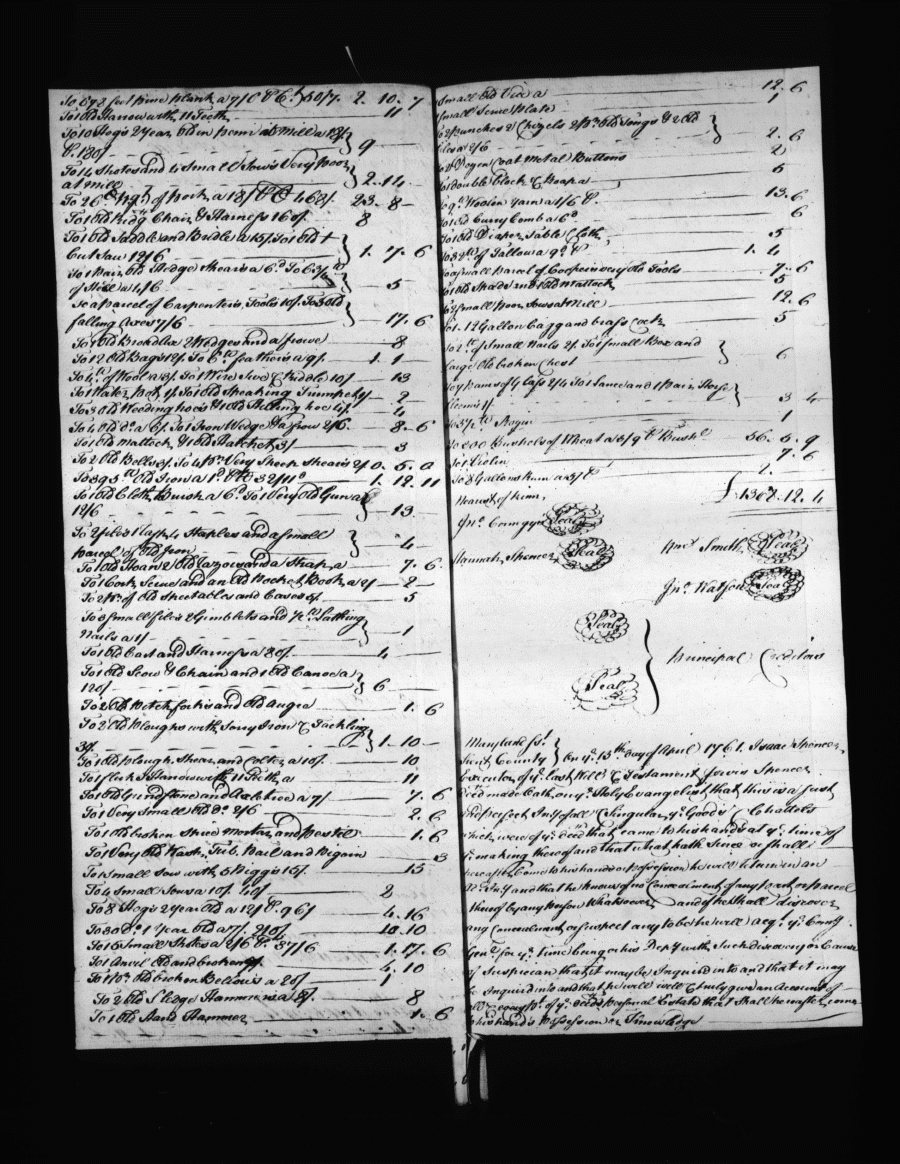 To 878 feet pine plank a 7/ P Ct. 50/7. 2. 10. 7
To 1 Old Harrow with 11 Teeth 11
To 10 Hogs 2 Year Old in penn at Mill a 18/
P. 180/ 9
To 14 Shotes and 4 Small Sows Very poor
at mill 2. 14
of Pork a 18/ P Ct 468/. 23. 8
To 1 Old Ridg Chair & Harness 160/. 8
To 1 Old Saddle and Bridle a 15/. To 1 Old +
Cut Saw 12/6 1. 7. 6
To 1 Pair Old Hedge Shears a 6d To 6 3/4 lb
of Steel a 1/6 5
To a parcel of Carpenters Tools 10/. To 3 Old
falling Axes 7/6 17. 6
To 1 Old Broad Ax 2 Wedges and a frowe 8
To 12 Old Bags 12/. To 6 lb feathers a 9/. 1. 1
To 4 lb of Wool a 3/. To 1 Wire Sive & Riddle 10/ 13
To 1 Water pot 1/. To 1 Old Speaking Trumpet 1/ 2
To 3 Old Weeding hoes & 1 Old Hilling hoe 4/. 4
To 4 Old do. a 6/. To 1 Iron Wedge & a frow 2/6. 8. 6
To 1 Old Mattock & 1 Old Hatchet 3/ 3
To 2 Old Bells 3/. To 4 Pr. Very Sheep Shears 2/ 0. 5. 0
To 395 lb Old Iron a 1d P lb 32/11 1. 12. 11
To 1 Old Cloth Brush a 6d. To 1 Very Old Gun a
12/6 13
To 2 files 1 Hasp 4 Staples and a small
parcel of Old Iron 4
To 1 Old Hoan 2 Old razors and a Strap a 7. 6
To 1 Cork Screw and an Old Pocket Book a 2/ 2
To 2 Pr. of Old Sheetables and Caves 5/. 5
To 3 Small files 2 Gimblets and lb Lathing
Nails a 1/ 1
To 1 Old Cart and Harness a 80/. 4
To 1 Old Scow & Chain and 1 Old Canoe a
120/ 6
To 2 Old Pitch forks and Old Auger 1. 6
To 2 Old Ploughs with Sorry Iron & Tackling
30/. 1. 10
To 1 Old Plough, Shear, and Colter a 10/. 10
To 1 fluke Harrow with 11 Teeth a 11
To 1 Old Grindstone and Axletree a 7/ 7. 6
To 1 Very Small Old do. 2/6 2. 6
To 1 Old broken Spice Mortar and Pestle 1. 6
To 1 Very Old Wash Tub. Pail and Pigein 3
To 1 Small Sow with 5 Piggs 15/. 15
To 4 Small Sows a 10/. 40/ 2
To 8 Hogs 2 Year Old a 12/ P. 96/ 4. 16
To 30 Do. 1 Year Old a 7/. 210/ 10. 10
To 15 Small Shotes a 2/6 P 37/6 1. 17. 6
To 1 Anvil Old and broken 4. 10
To 1 Pr. Old broken Bellows a 20/ 1
To 2 Old Sledge Hammers a 8/. 8
To 1 Old Hand Hammer 1. 6
Small Old Vice a 12. 6
Small Screw Plate 1
2 punches 2 Chizels 2 Pr. Old Tongs & 2 Old
files a 2/6 2. 6
Dozen Coat Metal Buttons 2
double Block & Rope a 5
Woolen Yarn a 1/6 P. 13. 6
Old Curry Comb a 6d 6
To 1 Old Diaper Table Cloth 5
To 32 lb of Tallow a 9d. P 1. 4
To a Small Parcel of Coopers very Old Tools 7. 6
To 1 Old Spade and 1 Old Mattock 5
To 2 Small Poor Sows at Mill 12. 6
To 1. 12 Gallon Cagg and brass Cock 5
To 2 lb of Small Nails 2/ To 1 Small Box and
large Old broken Chest 6
To 7 Panes of Glass 2/4 To 1 Lance and 1 Pair Horse
fleems 1/. 3 4
lb Sugar 1
To 300 Bushels of Wheat a 3/9 P Bushl. 56. 5. 9
To 1 Violin 7. 6
To 8 Gallons Rum a 5/ P 2.
Nearest of kinn, £1307. 12. 4
Jno. Comegys Seal
Hannah Spencer Seal Wm. Smith Seal
Jno. Watson Seal
Seal
Principal Creditors
Seal
Maryland Ss.
Kent County On ye. 13th day of April 1761. Isaac Spencer
Executor of ye. Last Will & Testament Jervis Spencer
decd. made Oath on ye. Holy Evangelist that this is a just
and perfect Inv. of all & Singular ye. Goods & Chattels
which were of ye. decd. that came to his hands at ye. time of
ye. making thereof and that what hath Since or shall
hereafter Come to his hands or possession he will return in an
Inty and that he knows of no Concealment of any part or parcel
thereof by any Person Whatsoever and if he Shall discover
any Concealment or Suspect any to be he will acqt. ye. Comy.
Genl. for ye. time being or his Depty with Such discovery or Cause
of Suspician that it may be Inquired into and that it may
be Inquired into and that he will well & truly give an Account of
all ye. decds. personal Estate that Shall hereafter come
to his hands Possession or Knowledge